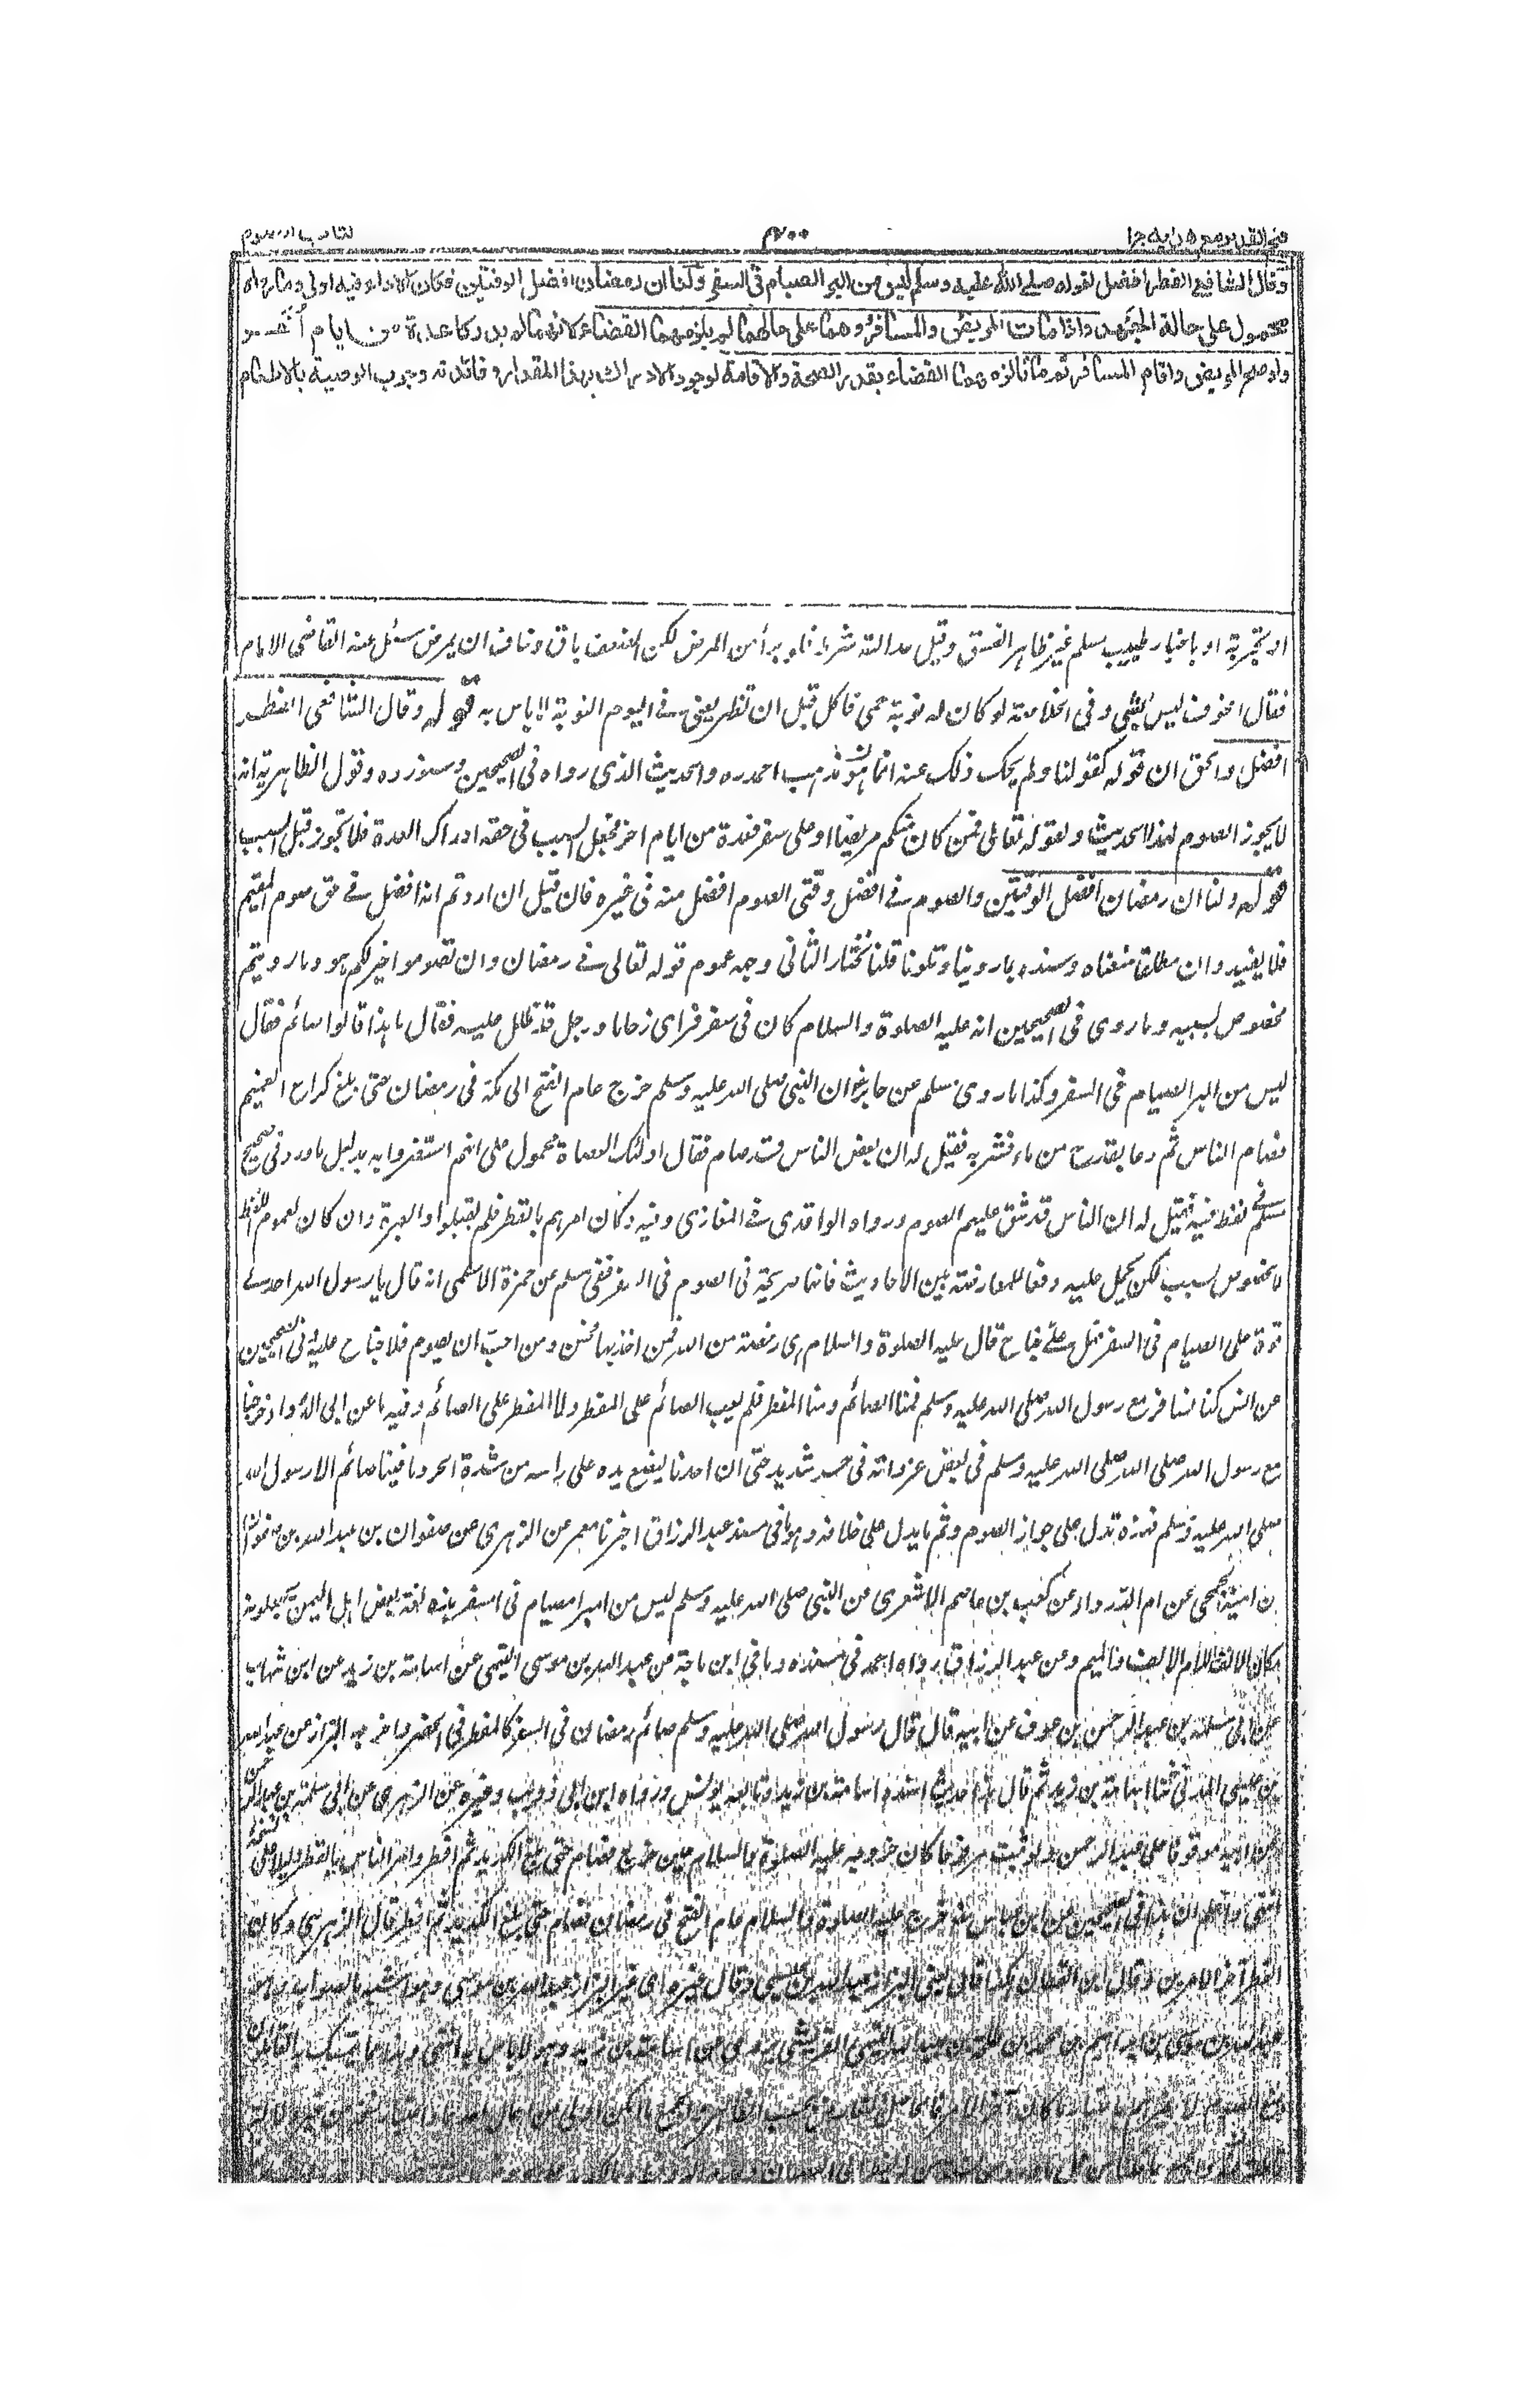 فتح القدير مع هدايه ج ١ ٤٠٠ كتاب الصوم
وقال الشافعي الفطر افضل لقوله صلى الله عليه وسلم ليس من البر الصيام في السفر ولنا ان رمضان افضل الوقتين فكان الاداء فيه اولى وما رواه
محمول على حالة الجهد واذا مات المريض والمسافر وهما على حالهما لم يلزمهما القضاء لانهما لم يدركا عدة من ايام أخر و
ولو صح المريض واقام المسافر ثم ماتا لزمهما القضاء بقدر الصحة والاقامة لوجود الادراك بهذا المقدار وفائدته وجوب الوصية بالاطعام
او تجربة او باخبار طبيب مسلم غير ظاهر الفسق وقيل عدالته شرط فلو برأ من المرض لكن الضعف باق وخاف ان يمرض سئل عنه القاضي الامام
فقال الخوف ليس بشيء وفي الخلاصة لو كان له نوبة حمى فاكل قبل ان تظهر يعني في اليوم النوبة لا باس به قوله وقال الشافعي الفطر
افضل والحق ان قوله كقولنا ولم يحك ذلك عنه انما هو مذهب احمد ره والحديث الذي رواه في الصحيحين وسنورده وقول الظاهرية انه
لا يجوز الصوم لهذا الحديث ولقوله تعالى فمن كان منكم مريضا او على سفر فعدة من ايام اخر فجعل السبب في حقه ادراك العدة فلا يجوز قبل السبب
قوله ولنا ان رمضان افضل الوقتين والصوم في افضل وقتي الصوم افضل منه في غيره فان قيل ان اردتم انه افضل في حق صوم المقيم
فلا يفيد وان مطلقا منعناه وسنده ما روينا وتلونا قلنا نختار الثاني وجه عموم قوله تعالى في رمضان وان تصوموا خير لكم هو وما رويتم
مخصوص بسببه وما روي في الصحيحين انه عليه الصلوة والسلام كان في سفر فراى زحاما ورجل قد ظلل عليه فقال ما هذا قالوا صائم فقال
ليس من البر الصيام في السفر وكذا ما روى مسلم عن جابر رض ان النبي صلى الله عليه وسلم خرج عام الفتح الى مكة في رمضان حتى بلغ كراع الغميم
فصام الناس ثم دعا بقدح من ماء فشربه فقيل له ان بعض الناس قد صام فقال اولئك العصاة محمول على انهم استضروا به بدليل ما ورد في صحيح
مسلم في لفظ فيه فقيل له ان الناس قد شق عليهم الصوم ورواه الواقدي في المغازي وفيه وكان امرهم بالفطر فلم يقبلوا والعبرة وان كان لعموم اللفظ
لا لخصوص السبب لكن يحمل عليه دفعا للمعارضة بين الاحاديث فانها صريحة في الصوم في السفر ففي مسلم عن حمزة الاسلمي انه قال يا رسول الله اجد بي
قوة على الصيام في السفر فهل علي جناح قال عليه الصلوة والسلام هي رخصة من الله فمن اخذ بها فحسن ومن احب ان يصوم فلا جناح عليه وفي الصحيحين
عن انس كنا نسافر مع رسول الله صلى الله عليه وسلم فمنا الصائم ومنا المفطر فلم يعب الصائم على المفطر ولا المفطر على الصائم وفيه ما عن ابي الدرداء خرجنا
مع رسول الله صلى الله صلى الله عليه وسلم في بعض غزواته في حر شديد حتى ان احدنا ليضع يده على راسه من شدة الحر وما فينا صائم الا رسول الله
صلى الله عليه وسلم فهذه تدل على جواز الصوم وثم ما يدل على خلافه وهو ما في مسند عبد الرزاق اخبرنا معمر عن الزهري عن صفوان بن عبد الله بن صفوان
بن امية الجمحي عن ام الدرداء عن كعب بن عاصم الاشعري عن النبي صلى الله عليه وسلم ليس من امبر امصيام في امسفر وهذه لغة بعض اهل اليمن يجعلون
مكان الالف اللام الالف والميم وعن عبد الرزاق رواه احمد في مسنده وما في ابن ماجة عن عبد الله بن موسى التيمي عن اسامة بن زيد عن ابن شهاب
عن ابي سلمة بن عبد الرحمن بن عوف عن ابيه قال قال رسول الله صلى الله عليه وسلم صائم رمضان في السفر كالمفطر في الحضر واخرجه البزار عن عبد الله
بن عيسى المدني ثنا اسامة بن زيد ثم قال هذا حديث اسنده اسامة بن زيد وتابعه يونس ورواه ابن ابي ذويب وغيره عن الزهري عن ابي سلمة بن عبد الرحمن
عن ابيه موقوفا على عبد الرحمن ولو ثبت مرفوعا كان خروجه عليه الصلوة والسلام حين خرج فصام حتى بلغ الكديد ثم افطر وامر الناس بالفطر دليلا على نسخه
انتهى واعلم ان هذا في الصحيحين عن ابن عباس رض خرج عليه الصلوة والسلام عام الفتح في رمضان فصام حتى بلغ الكديد ثم افطر قال الزهري وكان
الفطر آخر الامرين وقال ابن القطان هكذا قال يعني البزار عبد الله بن عيسى وقال غيره اي غير البزار عبد الله بن موسى وهو اشبه بالصواب وهو
عبد الله بن موسى بن ابراهيم بن محمد بن طلحة بن عبيد الله التيمي القرشي يروي عن اسامة بن زيد وهو لا باس به انتهى